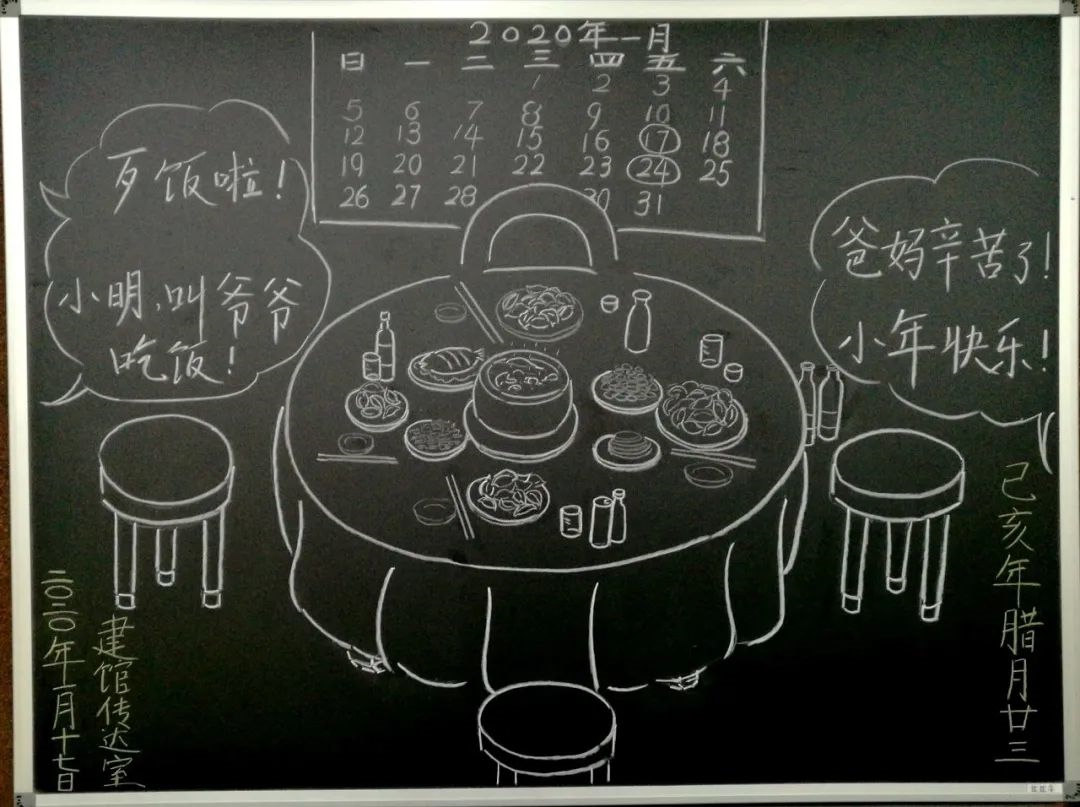 2020年一月
日 一 二 三 四 五 六
1 2 3 4
5 6 7 8 9 10 11
12 13 14 15 16 17 18
19 20 21 22 23 24 25
26 27 28 30 31
歹饭啦!
小明,叫爷爷
吃饭!
爸妈辛苦了!
小年快乐!
己亥年腊月廿三
建馆传达室
二〇二〇年一月十七日